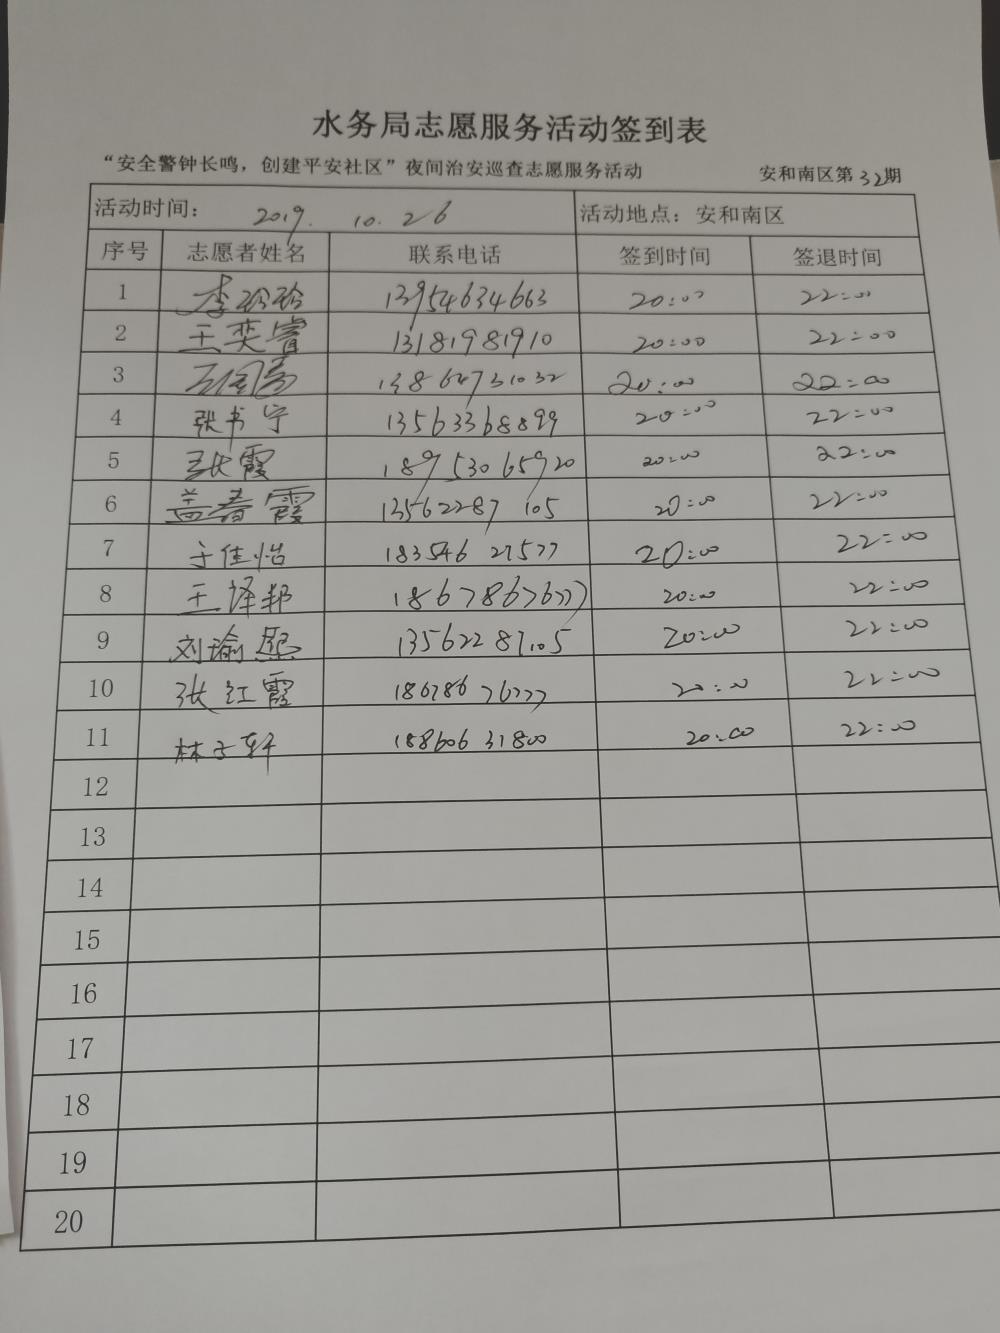 水务局志愿服务活动签到表
“安全警钟长鸣，创建平安社区”夜间治安巡查志愿服务活动 安和南区第32期
活动时间： 2019. 10. 26 活动地点：安和南区
序号 志愿者姓名 联系电话 签到时间 签退时间
1 李玲玲 13954634663 20:00 22:00
2 王奕睿 13181981910 20:00 22:00
3 13864731032 20:00 22:00
4 张书宁 13563368899 20:00 22:00
5 张霞 18953065920 20:00 22:00
6 盖春霞 13562287105 20:00 22:00
7 于佳怡 18354627577 20:00 22:00
8 王译邦 18678676777 20:00 22:00
9 刘瑜熙 13562287105 20:00 22:00
10 张红霞 18678676777 20:00 22:00
11 林子轩 18860631800 20:00 22:00
12
13
14
15
16
17
18
19
20